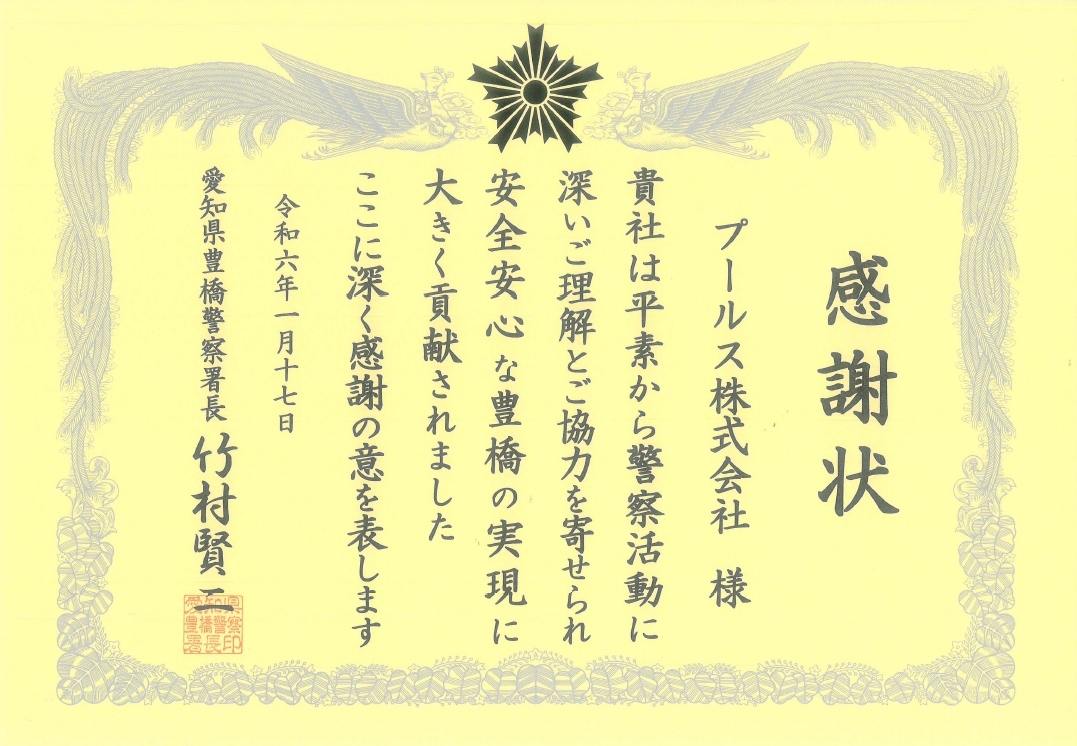 感謝状
プールス株式会社 様
貴社は平素から警察活動に
深いご理解とご協力を寄せられ
安全安心な豊橋の実現に
大きく貢献されました
ここに深く感謝の意を表します
令和六年一月十七日
愛知県豊橋警察署長 竹村賢二
愛知県豊橋警察署長印